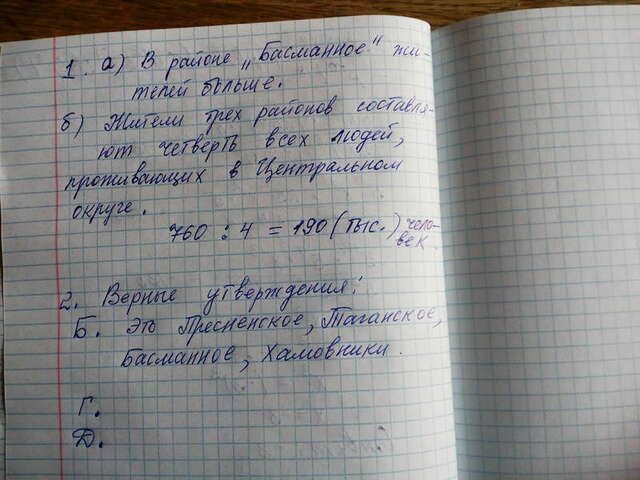 1. а) В районе „Басманное" жи-
телей больше.
б) Жители трех районов составля-
ют четверть всех людей,
проживающих в Центральном
округе.
760 : 4 = 190 (тыс.) чело-
век.
2. Верные утверждения:
Б. Это Пресненское, Таганское,
Басманное, Хамовники.
Г.
Д.